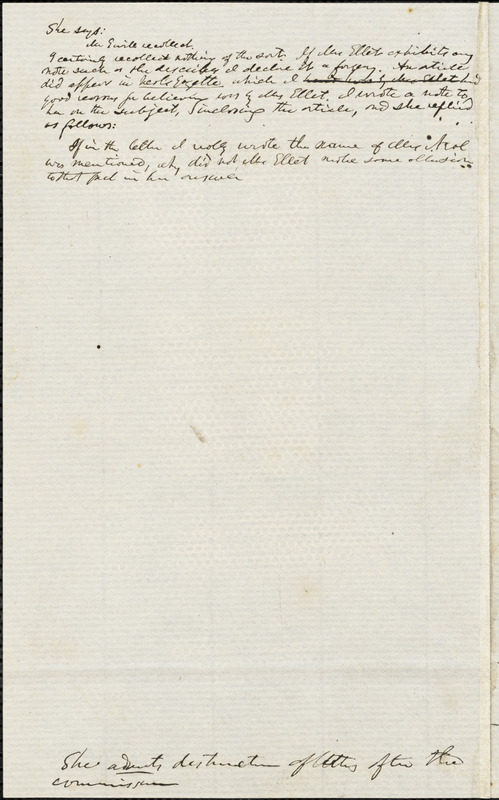 She says:
Mr Griswold will recollect.
I certainly recollect nothing of the sort. If Mrs Ellet exhibits any
note such as she describes, I declare it a forgery. An article
did appear in Neal's Gazette, which I had
good reasons for believing was by Mrs Ellet. I wrote a note to
her on the subject, inclosing the article, and she replied
as follows:
If in the letter I really wrote the name of Mrs Neal
was mentioned, why did not Mrs Ellet make some allusion
to that fact in her answer
She admits destruction of letters after the
commission